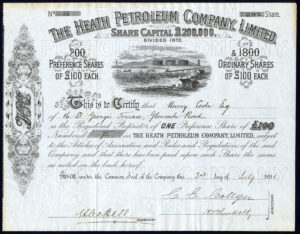 No.
ONE Share.
THE HEATH PETROLEUM COMPANY, LIMITED
SHARE CAPITAL £200,000.
DIVIDED INTO
200 & 1800
PREFERENCE SHARES ORDINARY SHARES
OF £100 EACH OF £100 EACH.
This is to Certify that Henry Esq
of St. George's Terrace, Gloucester Road
is the Registered Proprietor of ONE Preference Share of £100
Numbered in THE HEATH PETROLEUM COMPANY, LIMITED, subject
to the Articles of Association and Rules and Regulations of the said
Company and that there has been paid upon such Share the sums
as noted on the back hereof.
Given under the Common Seal of the Company this 2nd day of July